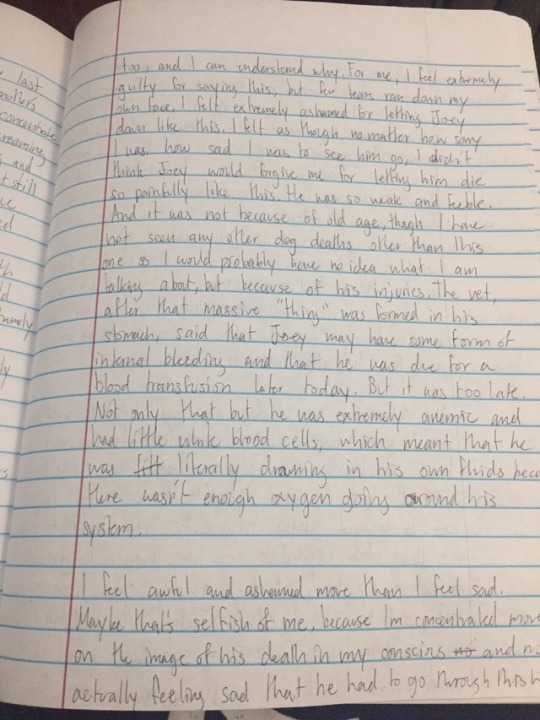 last
too, and I can understand why. For me, I feel extremely
guilty for saying this, but few tears ran down my
own face. I felt extremely ashamed for letting Joey
down like this. I felt as though no matter how sorry
I was, how sad I was to see him go, I didn't
think Joey would forgive me for letting him die
so painfully like this. He was so weak and feeble.
And it was not because of old age, though I have
not seen any other dog deaths other than this
one so I would probably have no idea what I am
talking about, but because of his injuries. The vet,
after that massive "thing" was formed in his
stomach, said that Joey may have some form of
internal bleeding and that he was due for a
blood transfusion later today. But it was too late.
Not only that but he was extremely anemic and
had little white blood cells, which meant that he
was literally drowning in his own fluids beca
there wasn't enough oxygen going around his
system.
I feel awful and ashamed more than I feel sad.
Maybe that's selfish of me, because I'm concentrated more
on the image of his death in my conscius and n
actually feeling sad that he had to go through this h
and
still